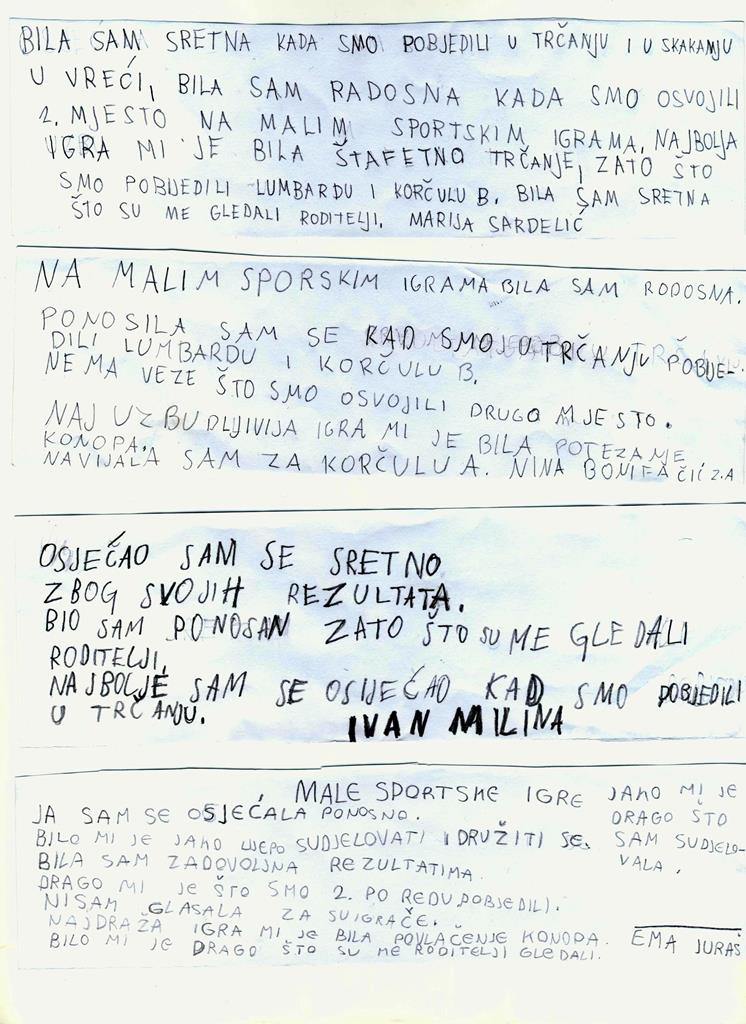 BILA SAM SRETNA KADA SMO POBJEDILI U TRČANJU I U SKAKANJU
U VREĆI, BILA SAM RADOSNA KADA SMO OSVOJILI
2. MJESTO NA MALIM SPORTSKIM IGRAMA. NAJBOLJA
IGRA MI JE BILA ŠTAFETNO TRČANJE, ZATO ŠTO
SMO POBIJEDILI LUMBARDU I KORČULU B. BILA SAM SRETNA
ŠTO SU ME GLEDALI RODITELJI. MARIJA SARDELIĆ
NA MALIM SPORSKIM IGRAMA BILA SAM RODOSNA.
PONOSILA SAM SE KAD SMO U TRČANJU POBIJE-
DILI LUMBARDU I KORČULU B.
NEMA VEZE ŠTO SMO OSVOJILI DRUGO MJESTO.
NAJ UZBUDLJIVIJA IGRA MI JE BILA POTEZANJE
KONOPA.
NAVIJALA SAM ZA KORČULU A. NINA BONIFAČIĆ 2.A
OSJEČAO SAM SE SRETNO
ZBOG SVOJIH REZULTATA.
BIO SAM PONOSAN ZATO ŠTO SU ME GLEDALI
RODITELJI,
NAJBOLJE SAM SE OSIJEČAO KAD SMO POBJEDILI
U TRČANJU. IVAN MILINA
MALE SPORTSKE IGRE
JA SAM SE OSJEĆALA PONOSNO.
BILO MI JE JAKO LIJEPO SUDJELOVATI I DRUŽITI SE.
BILA SAM ZADOVOLJNA REZULTATIMA.
DRAGO MI JE ŠTO SMO 2. PO REDU POBJEDILI.
NISAM GLASALA ZA SUIGRAČE.
NAJDRAŽA IGRA MI JE BILA POVLAČENJE KONOPA.
BILO MI JE DRAGO ŠTO SU ME RODITELJI GLEDALI.
JAKO MI JE
DRAGO ŠTO
SAM SUDJELO-
VALA.
EMA JURAŠ